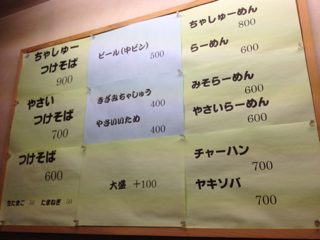 ちゃしゅー
つけそば
900
やさい
つけそば
700
つけそば
600
生たまご 50 たまねぎ 50
ビール(中ビン)
500
きざみちゃしゅう
400
やさいいため
400
大盛 +100
ちゃしゅーめん
800
らーめん
600
みそらーめん
600
やさいらーめん
600
チャーハン
700
ヤキソバ
700